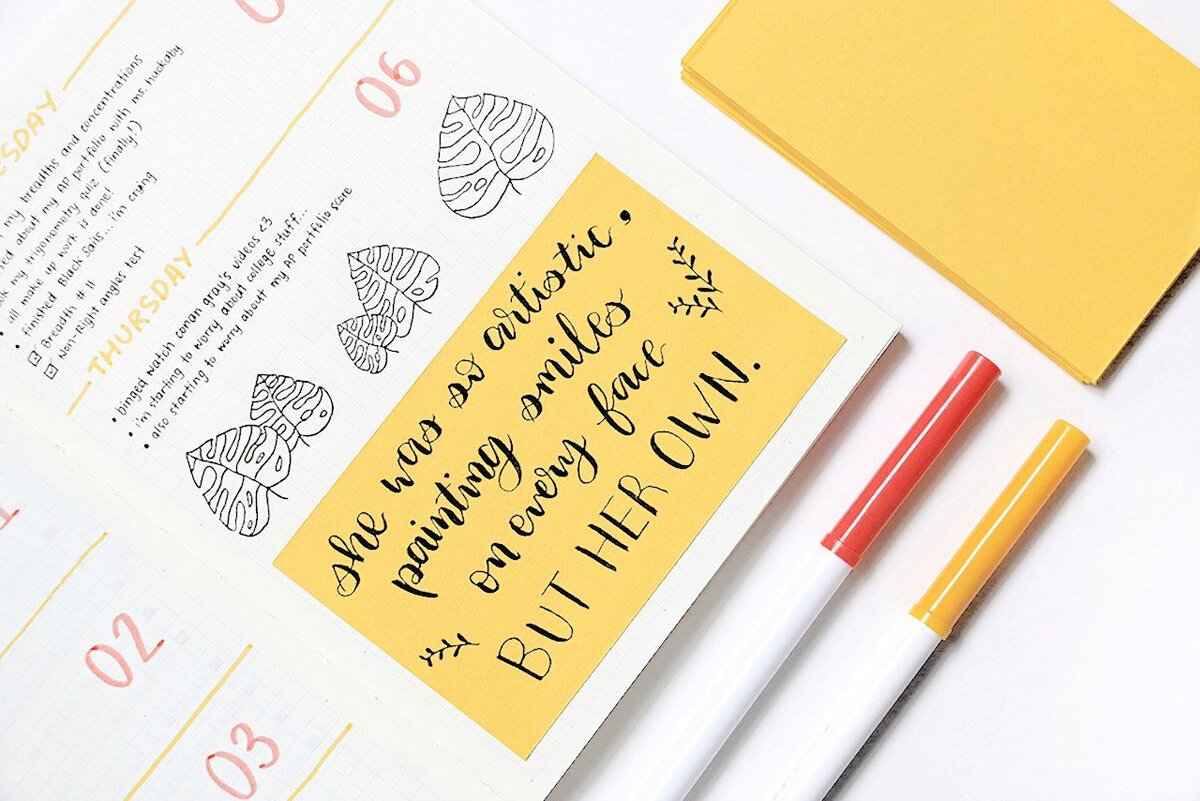 ESDAY
my breadths and concentrations
about my AP portfolio with ms. huckaby
my trigonometry quiz (finally!)
all make up work is done!
• finished Black Sails... i'm crying
Breadth #11
Non-Right angles test
06
THURSDAY
• binged watch conan gray's videos <3
• i'm starting to worry about college stuff...
• also starting to worry about my AP portfolio score
she was so artistic,
painting smiles
on every face
BUT HER OWN.
02
03